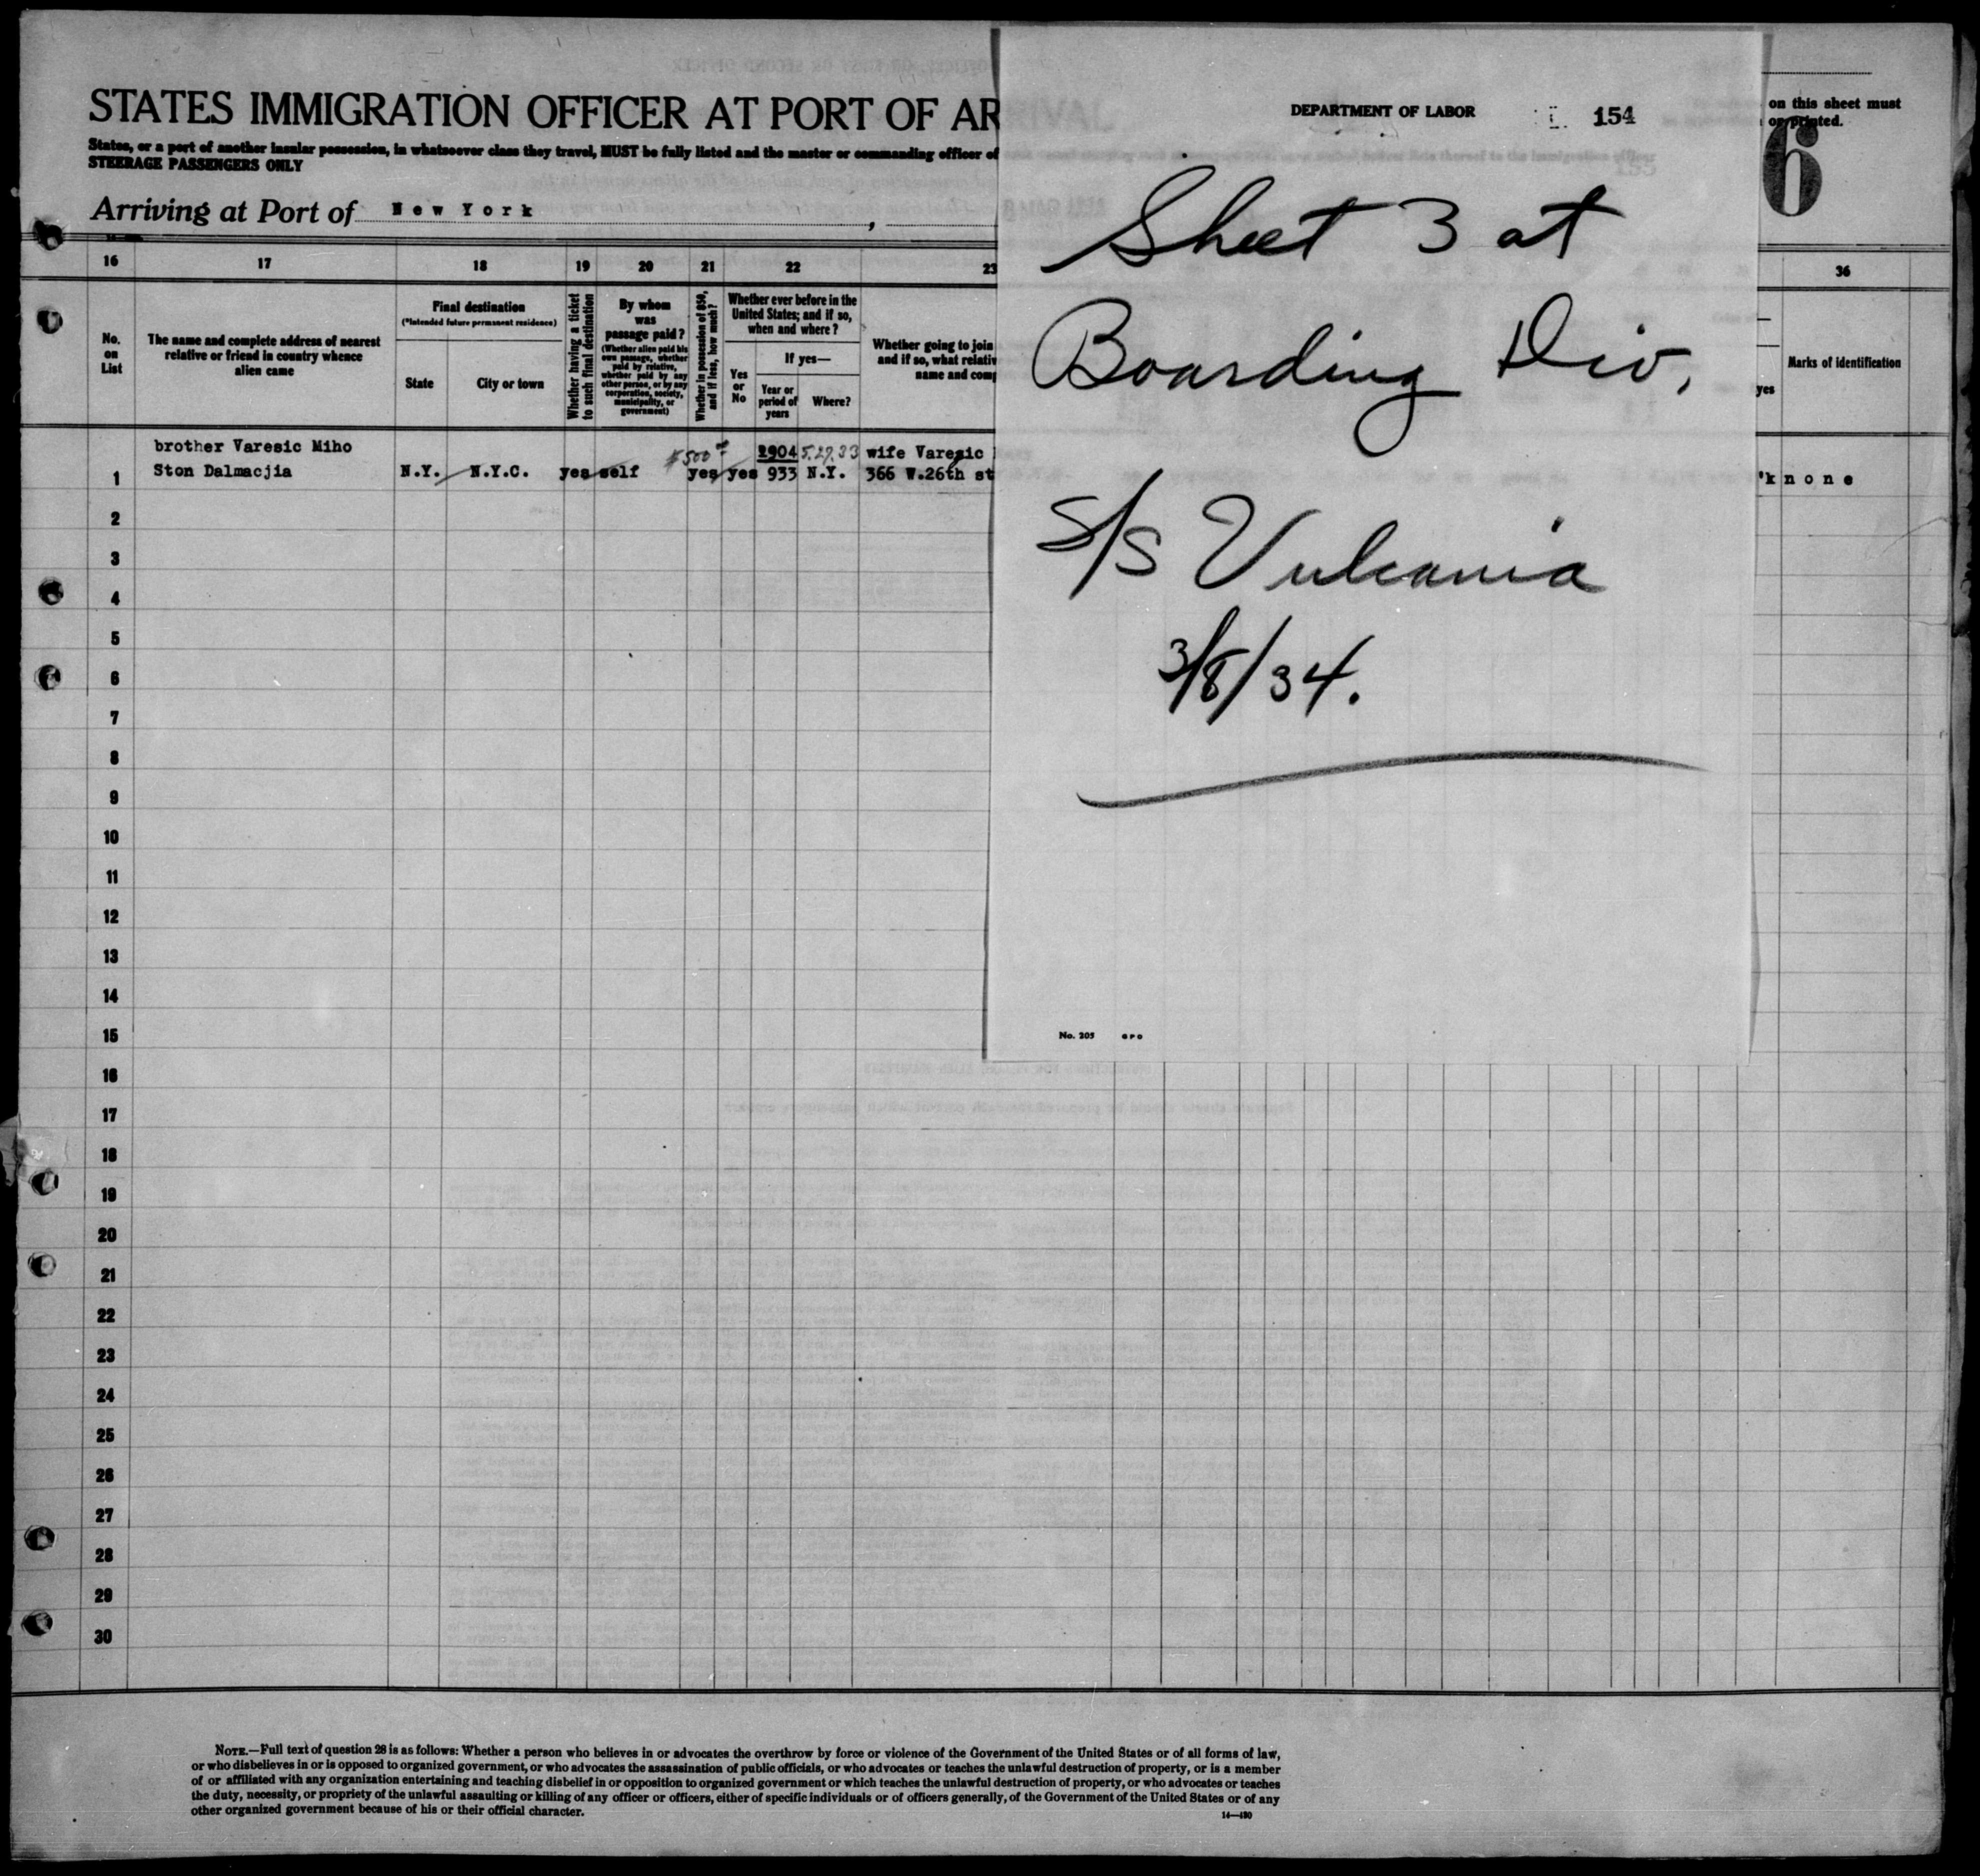 STATES IMMIGRATION OFFICER AT PORT OF AR
States, or a port of another insular possession, in whatsoever class they travel, MUST be fully listed and the master or commanding officer of
STEERAGE PASSENGERS ONLY
Arriving at Port of New York,
on this sheet must
or printed.
6
16 17 18 19 20 21 22 23 36
No. on List
The name and complete address of nearest
relative or friend in country whence
alien came
Final destination
(*Intended future permanent residence)
State
City or town
Whether having a ticket
to such final destination
By whom
was
passage paid?
(Whether alien paid his
own passage, whether
paid by relative,
whether paid by any
other person, or by any
corporation, society,
municipality, or
government)
Whether in possession of $50,
and if less, how much?
Whether ever before in the
United States; and if so,
when and where?
Yes
or
No
If yes—
Year or
period of
years
Where?
Whether going to join
and if so, what relativ
name and comp
yes
Marks of identification
brother Varesic Miho $500 2904 5.27.33 wife Varesic
1 Ston Dalmacjia N.Y. N.Y.C. yes self yes yes 933 N.Y. 366 W.26th st
none
2
3
4
5
6
7
8
9
10
11
12
13
14
15
16
17
18
19
20
21
22
23
24
25
26
27
28
29
30
DEPARTMENT OF LABOR
154
Sheet 3 at
Boarding Div.
S/S Vulcania
3/8/34.
No. 205 GPO
NOTE.—Full text of question 28 is as follows: Whether a person who believes in or advocates the overthrow by force or violence of the Government of the United States or of all forms of law,
or who disbelieves in or is opposed to organized government, or who advocates the assassination of public officials, or who advocates or teaches the unlawful destruction of property, or is a member
of or affiliated with any organization entertaining and teaching disbelief in or opposition to organized government or which teaches the unlawful destruction of property, or who advocates or teaches
the duty, necessity, or propriety of the unlawful assaulting or killing of any officer or officers, either of specific individuals or of officers generally, of the Government of the United States or of any
other organized government because of his or their official character.
14—430